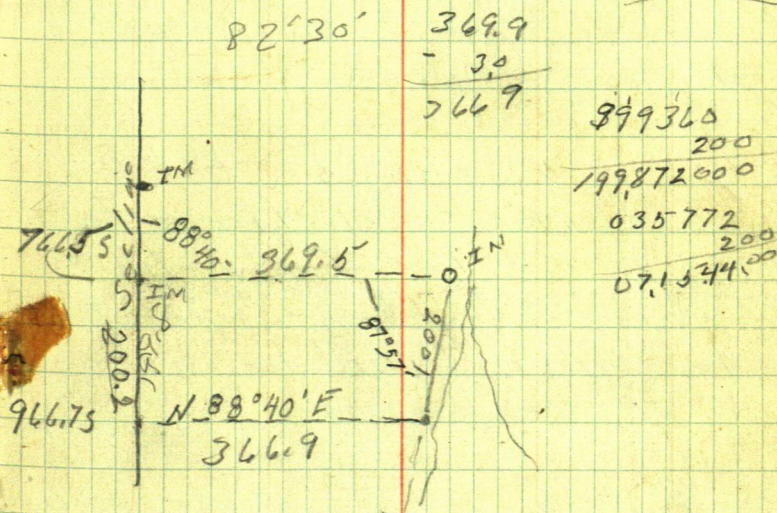 82'30'
369.9
- 3.0
366 9
999360
200
199,872 000
035772
200
07,1544,00
IM
88°
40'
766.5 S
369.5
IN
IM
87°57'
200.2
2001
966.7S
N 88°40'E
366.9